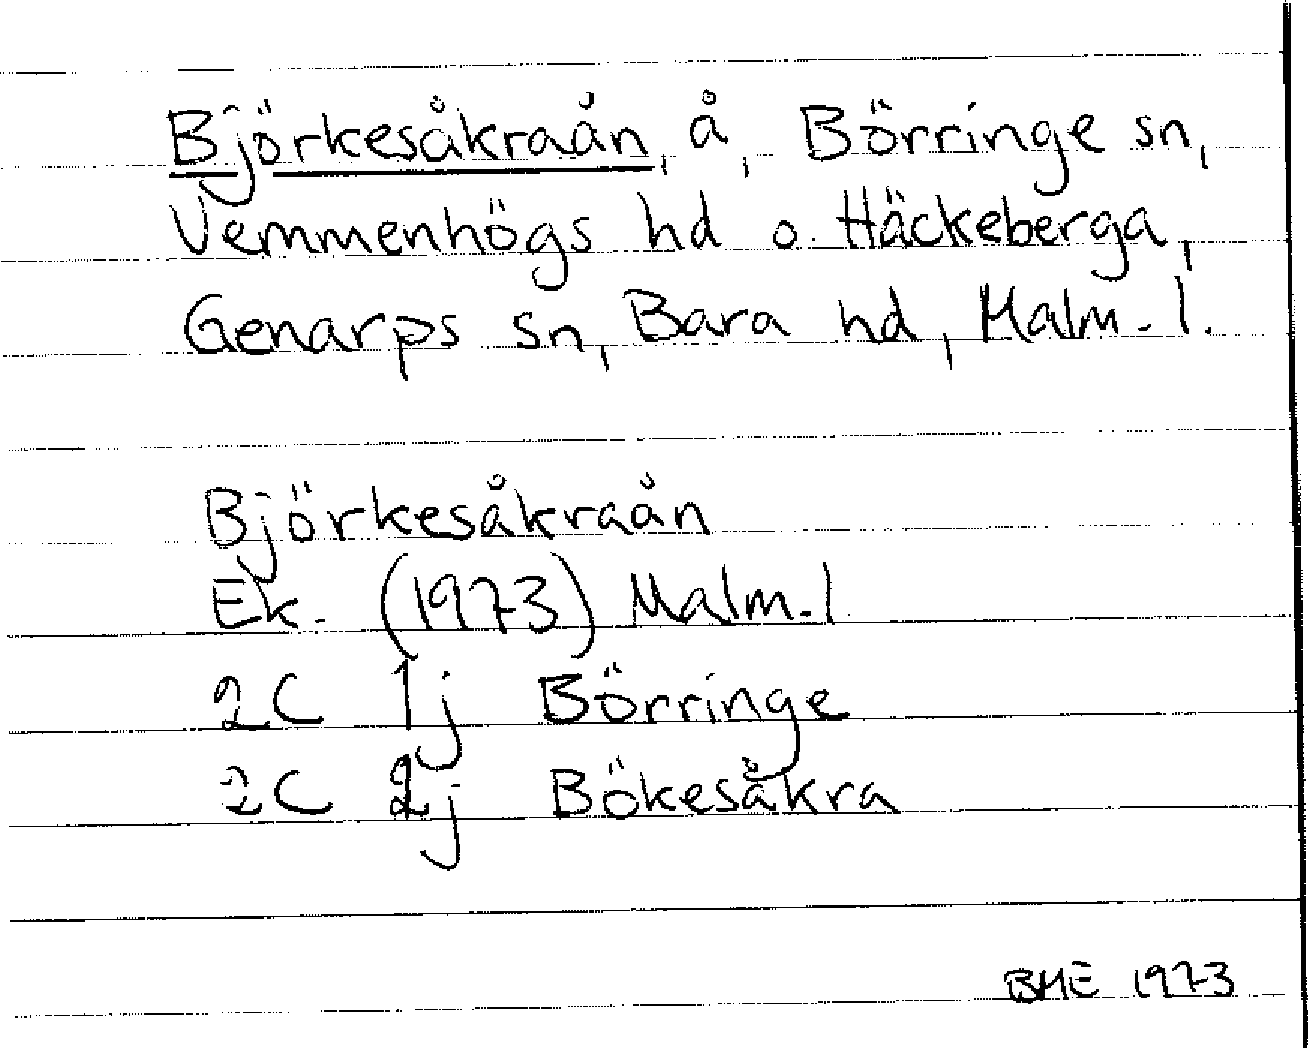 Björkesåkraån, å, Börringe sn,
Vemmenhögs hd o. Häckeberga,
Genarps sn, Bara hd, Malm. l.
Björkesåkraån
Ek. (1973) Malm. l
2C 1j Börringe
2C 2j Bökesåkra
BME 1973